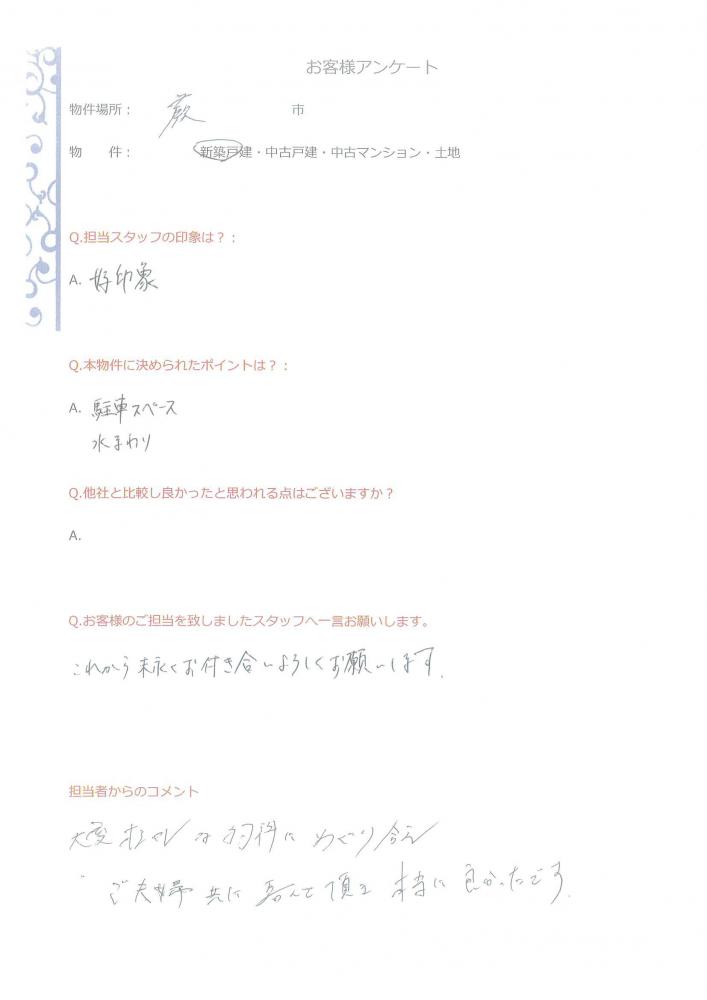 お客様アンケート
物件場所： 蕨 市
物　　件： 新築戸建・中古戸建・中古マンション・土地
Q.担当スタッフの印象は？：
A. 好印象
Q.本物件に決められたポイントは？：
A. 駐車スペース
水まわり
Q.他社と比較し良かったと思われる点はございますか？
A.
Q.お客様のご担当を致しましたスタッフへ一言お願いします。
これから末永くお付き合いよろしくお願いします.
担当者からのコメント
大変オシャレな物件にめぐり合え
ご夫婦共に喜んで頂き本当に良かったです.